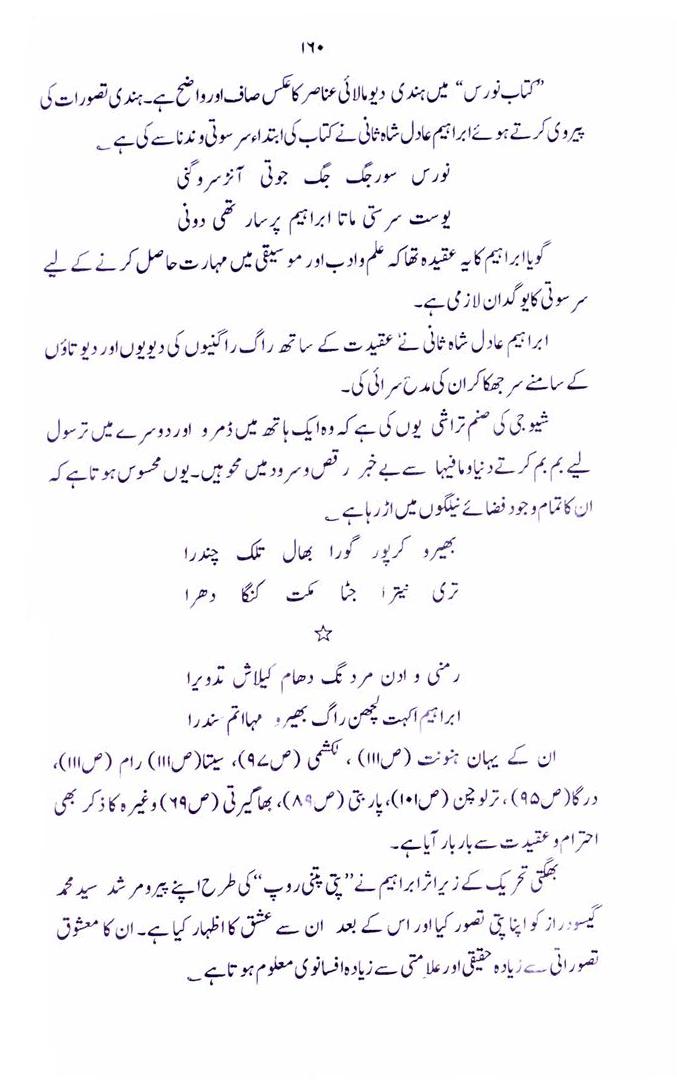 ۱۶۰
”کتاب نورس“ میں ہندی دیو مالائی عناصر کا عکس صاف اور واضح ہے۔ ہندی تصورات کی
پیروی کرتے ہوئے ابراہیم عادل شاہ ثانی نے کتاب کی ابتداء سرسوتی وندنا سے کی ہے ؂
نورس سور جگ جگ جوتی آنڑ سروگنی
یوست سرستی ماتا ابراہیم پرسار تھی دونی
گویا ابراہیم کا یہ عقیدہ تھا کہ علم و ادب اور موسیقی میں مہارت حاصل کرنے کے لیے
سرسوتی کا یوگدان لازمی ہے۔
ابراہیم عادل شاہ ثانی نے عقیدت کے ساتھ راگ راگنیوں کی دیویوں اور دیوتاؤں
کے سامنے سر جھکا کر ان کی مدح سرائی کی۔
شیو جی کی صنم تراشی یوں کی ہے کہ وہ ایک ہاتھ میں ڈمرو اور دوسرے میں ترسول
لیے بم بم کرتے دنیا و مافیہا سے بے خبر رقص و سرود میں محو ہیں۔ یوں محسوس ہوتا ہے کہ
ان کا تمام وجود فضائے نیلگوں میں اڑ رہا ہے ؂
بھیرو کرپور گورا بھال تلک چندرا
تری نیترا جٹا مکت گنگا دھرا
☆
رمنی و ادن مردنگ دھام کیلاش تدویرا
ابراہیم اکہت لچھن راگ بھیرو مہا اتم سندرا
ان کے یہاں ہنونت (ص۱۱۱) ، لکشمی (ص۹۷)، سیتا (ص۱۱۱) رام (ص۱۱۱)،
درگا (ص۹۵) ، ترلوچن (ص۱۰۱)، پاربتی (ص۸۹)، بھاگیرتی (ص۶۹) وغیرہ کا ذکر بھی
احترام و عقیدت سے بار بار آیا ہے۔
بھگتی تحریک کے زیر اثر ابراہیم نے ”پتی پتنی روپ“ کی طرح اپنے پیر و مرشد سید محمد
گیسودراز کو اپنا پتی تصور کیا اور اس کے بعد ان سے عشق کا اظہار کیا ہے۔ ان کا معشوق
تصوراتی سے زیادہ حقیقی اور علامتی سے زیادہ افسانوی معلوم ہوتا ہے ؂